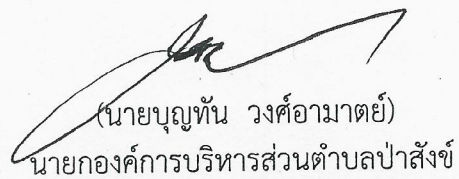 (นายบุญทัน วงศ์อามาตย์)
นายกองค์การบริหารส่วนตำบลป่าสังข์